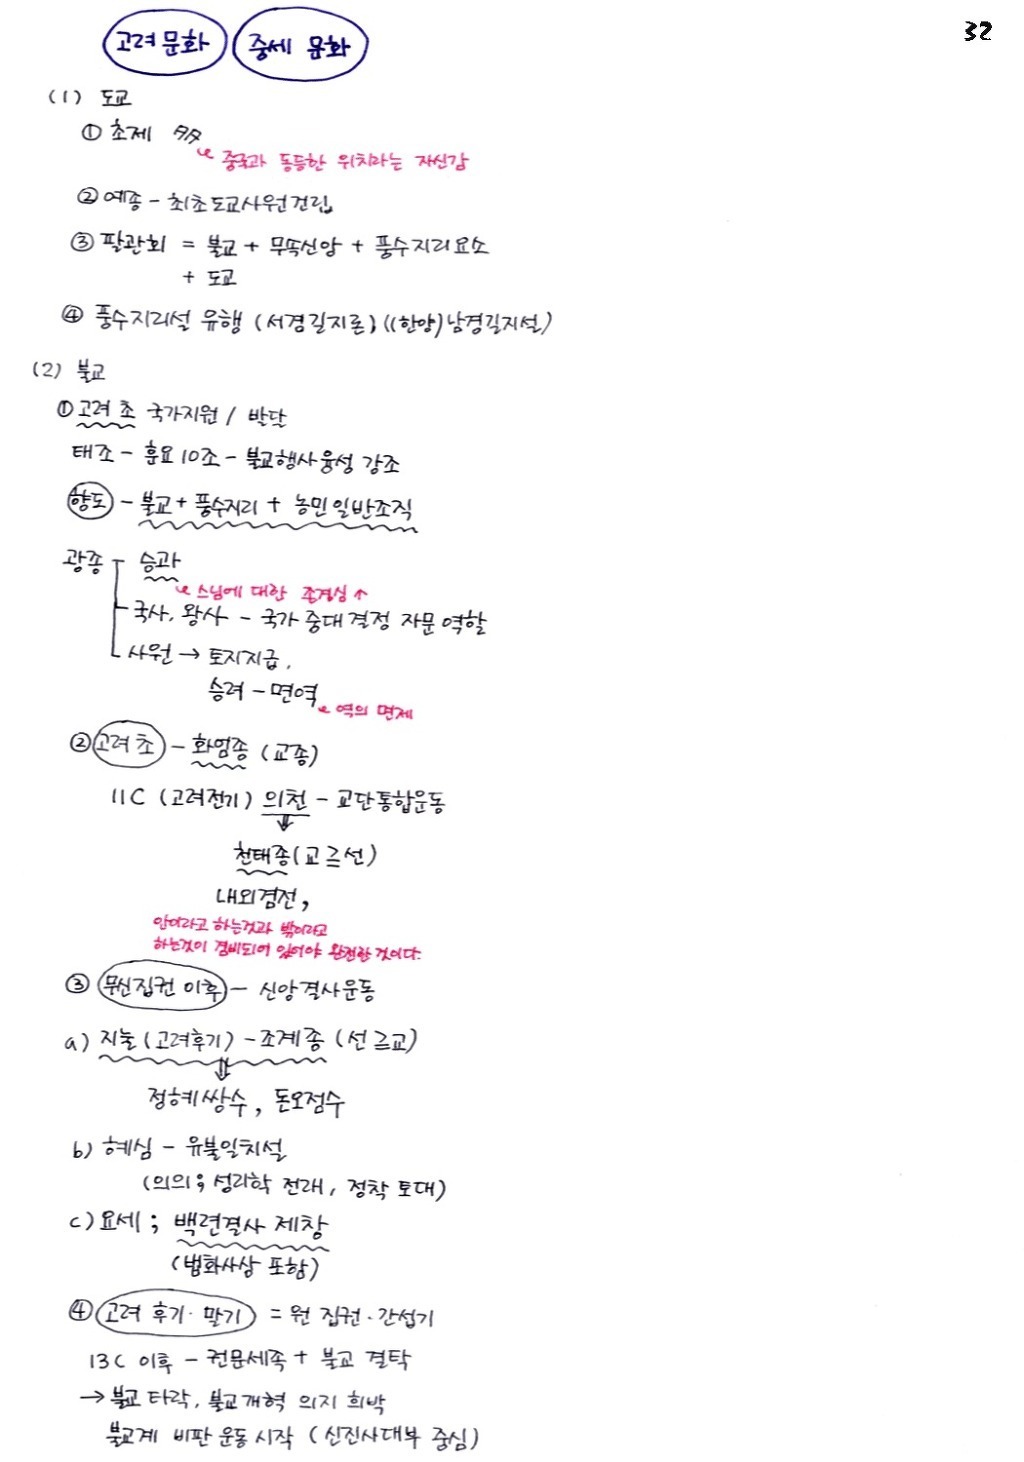 고려 문화 중세 문화
32
(1) 도교
① 초제 多
중국과 동등한 위치라는 자신감
② 예종 - 최초도교사원건립
③ 팔관회 = 불교 + 무속신앙 + 풍수지리요소
+ 도교
④ 풍수지리설 유행 (서경길지론) ((한양)남경길지설)
(2) 불교
① 고려 초 국가지원 / 발달
태조 - 훈요10조 - 불교행사융성 강조
향도 - 불교 + 풍수지리 + 농민일반조직
광종 승과
스님에 대한 존경심↑
국사, 왕사 - 국가 중대결정 자문 역할
사원 → 토지지급,
승려 - 면역
역의 면제
② 고려 초 - 화엄종 (교종)
11C (고려전기) 의천 - 교단통합운동
천태종(교≧선)
내외겸전,
안이라고 하는것과 밖이라고
하는것이 겸비되어 있어야 완전한 것이다.
③ 무신집권 이후 - 신앙결사운동
a) 지눌(고려후기) - 조계종 (선≧교)
정혜쌍수, 돈오점수
b) 혜심 - 유불일치설
(의의; 성리학 전래, 정착 토대)
c) 요세; 백련결사 제창
(법화사상 포함)
④ 고려 후기·말기 = 원 집권·간섭기
13C 이후 - 권문세족 + 불교 결탁
→ 불교 타락, 불교개혁 의지 희박
불교계 비판 운동 시작 (신진사대부 중심)